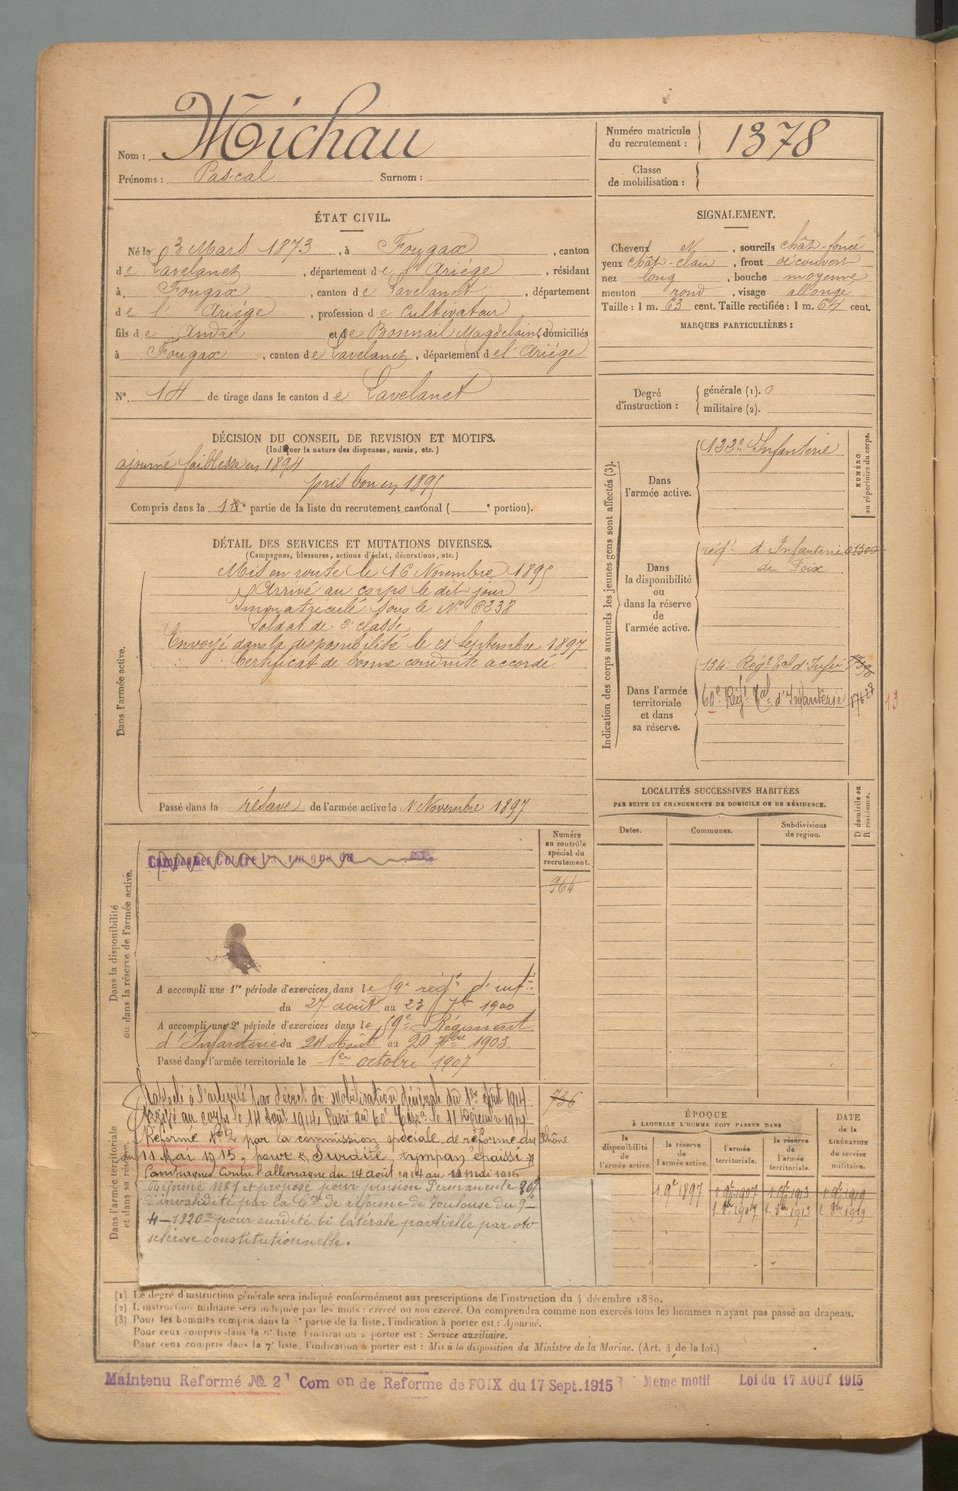 Nom : Michau
Prénoms : Pascal Surnom :
Numéro matricule du recrutement : 1378
Classe de mobilisation :
ÉTAT CIVIL.
Né le 3 Mars 1873, à Fougax, canton
de Lavelanet, département de l'Ariége, résidant
à Fougax, canton de Lavelanet, département
de l'Ariége, profession de Cultivateur
fils de André et de Bonnail Magdelaine, domiciliés
à Fougax, canton de Lavelanet, département de l'Ariége
N°. 14 de tirage dans le canton de Lavelanet
SIGNALEMENT.
Cheveux et, sourcils chât-foncé
yeux chât-clair, front découvert
nez long, bouche moyenne
menton rond, visage allongé
Taille : 1 m. 63 cent. Taille rectifiée : 1 m. 64 cent.
MARQUES PARTICULIÈRES :
Degré d'instruction : générale (1). 0
militaire (2).
DÉCISION DU CONSEIL DE REVISION ET MOTIFS.
(Indiquer la nature des dispenses, sursis, etc.)
ajourné faiblesse en 1894
pris bon en 1895
Compris dans la 1re partie de la liste du recrutement cantonal ( e portion).
DÉTAIL DES SERVICES ET MUTATIONS DIVERSES.
(Campagnes, blessures, actions d'éclat, décorations, etc.)
Dans l'armée active.
Mis en route le 16 Novembre 1895
Arrivé au corps le dit jour
Immatriculé sous le N° 6338
Soldat de 2e classe
Envoyé dans la disponibilité le 21 Septembre 1897
Certificat de bonne conduite accordé.
Passé dans la réserve de l'armée active le 1 Novembre 1897
Indication des corps auxquels les jeunes gens sont affectés (3).
NUMÉRO au répertoire du corps.
Dans l'armée active.
122e Infanterie
Dans la disponibilité ou dans la réserve de l'armée active.
régt d'Infanterie
de Foix
Dans l'armée territoriale et dans sa réserve.
134e Régt Tal d'Infie
60e Régt Tal d'Infanterie
13
LOCALITÉS SUCCESSIVES HABITÉES
PAR SUITE DE CHANGEMENTS DE DOMICILE OU DE RÉSIDENCE.
Dates. Communes. Subdivisions de région.
D domicile ou R résidence.
Dans la disponibilité ou dans la réserve de l'armée active.
Numéro au contrôle spécial du recrutement.
964
A accompli une 1re période d'exercices dans le 59e régt d'inf
du 27 août au 23 7bre 1900
A accompli une 2e période d'exercices dans le 59e Régiment
d'Infanterie du 24 Août au 20 7bre 1903.
Passé dans l'armée territoriale le 1er octobre 1907
Dans l'armée territoriale et dans sa réserve.
736
Rappelé à l'activité par décret de Mobilisation Générale du 1er Août 1914
Arrivé au corps le 14 Août 1914. Passé au 60e Terral le 11 Décembre 1914
Réformé N° 2 par la commission spéciale de réforme du Rhône
du 11 Mai 1915, pour surdité, tympan épaissi
Campagnes Contre l'allemagne du 14 août 1914 au 11 mai 1915
Réformé N° 1 et proposé pour pension Permanente 20%
d'invalidité par la Con de réforme de Toulouse du 9-
4-1920 pour surdité bi latérale partielle par oto
sclérose constitutionnelle.
ÉPOQUE
À LAQUELLE L'HOMME DOIT PASSER DANS
la disponibilité de l'armée active.
la réserve de l'armée active.
l'armée territoriale.
la réserve de l'armée territoriale.
DATE de la LIBÉRATION du service militaire.
1 9bre 1897
(1) Le degré d'instruction générale sera indiqué conformément aux prescriptions de l'instruction du 4 décembre 1889.
(2) L'instruction militaire sera indiquée par les mots : exercé ou non exercé. On comprendra comme non exercés tous les hommes n'ayant pas passé au drapeau.
(3) Pour les hommes compris dans la partie de la liste, l'indication à porter est : Ajourné.
Pour ceux compris dans la liste, l'indication à porter est : Service auxiliaire.
Pour ceux compris dans la 7e liste, l'indication à porter est : Mis à la disposition du Ministre de la Marine. (Art. 4 de la loi.)
Maintenu Reformé No. 2 Comon de Reforme de FOIX du 17 Sept. 1915 Meme motif Loi du 17 AOUT 1915